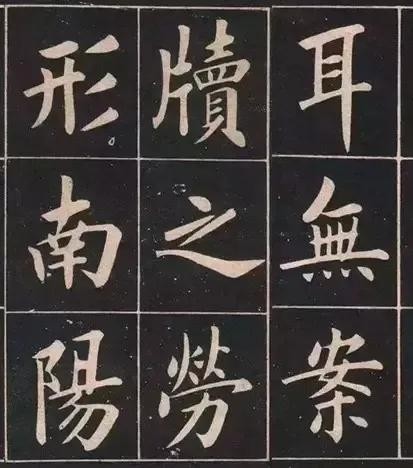 耳無案
牘之勞
形南陽